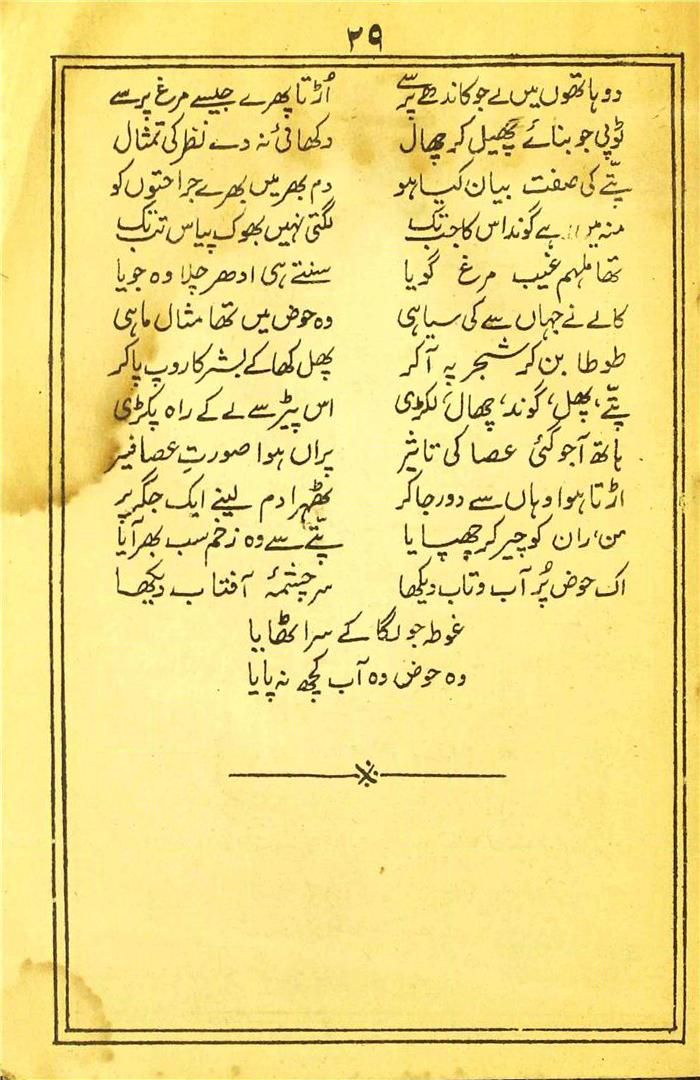 ۲۹
دو ہاتھوں میں لے جو کاندھے پر سے اُڑتا پھرے جیسے مرغ پر سے
ٹوپی جو بنائے چھیل کر چھال دکھائی نہ دے نظر کی تمثال
پتّے کی صفت بیان کیا ہو دم بھر میں بھرے جراحتوں کو
منہ میں ہے گوند اس کا جب تک لگتی نہیں بھوک پیاس تب تک
تھا ملہم غیب مرغ گویا سنتے ہی ادھر چلا وہ جویا
کالے نے جہاں سے کی سیاہی وہ حوض میں تھا مثال ماہی
طوطا بن کر شجر پہ آ کر پھل کھا کے بشر کا روپ پا کر
پتّے، پھل، گوند، چھال، لکڑی اس پیڑ سے لے کے راہ پکڑی
ہاتھ آ جو گئی عصا کی تاثیر پراں ہوا صورتِ عصافیر
اڑتا ہوا وہاں سے دور جا کر ٹھہرا دم لینے ایک جگہ پر
من، ران کو چیر کر چھپایا پتّے سے وہ زخم سب بھر آیا
اک حوض پُر آب و تاب دیکھا سرچشمۂ آفتاب دیکھا
غوطہ جو لگا کے سر اٹھایا
وہ حوض وہ آب کچھ نہ پایا